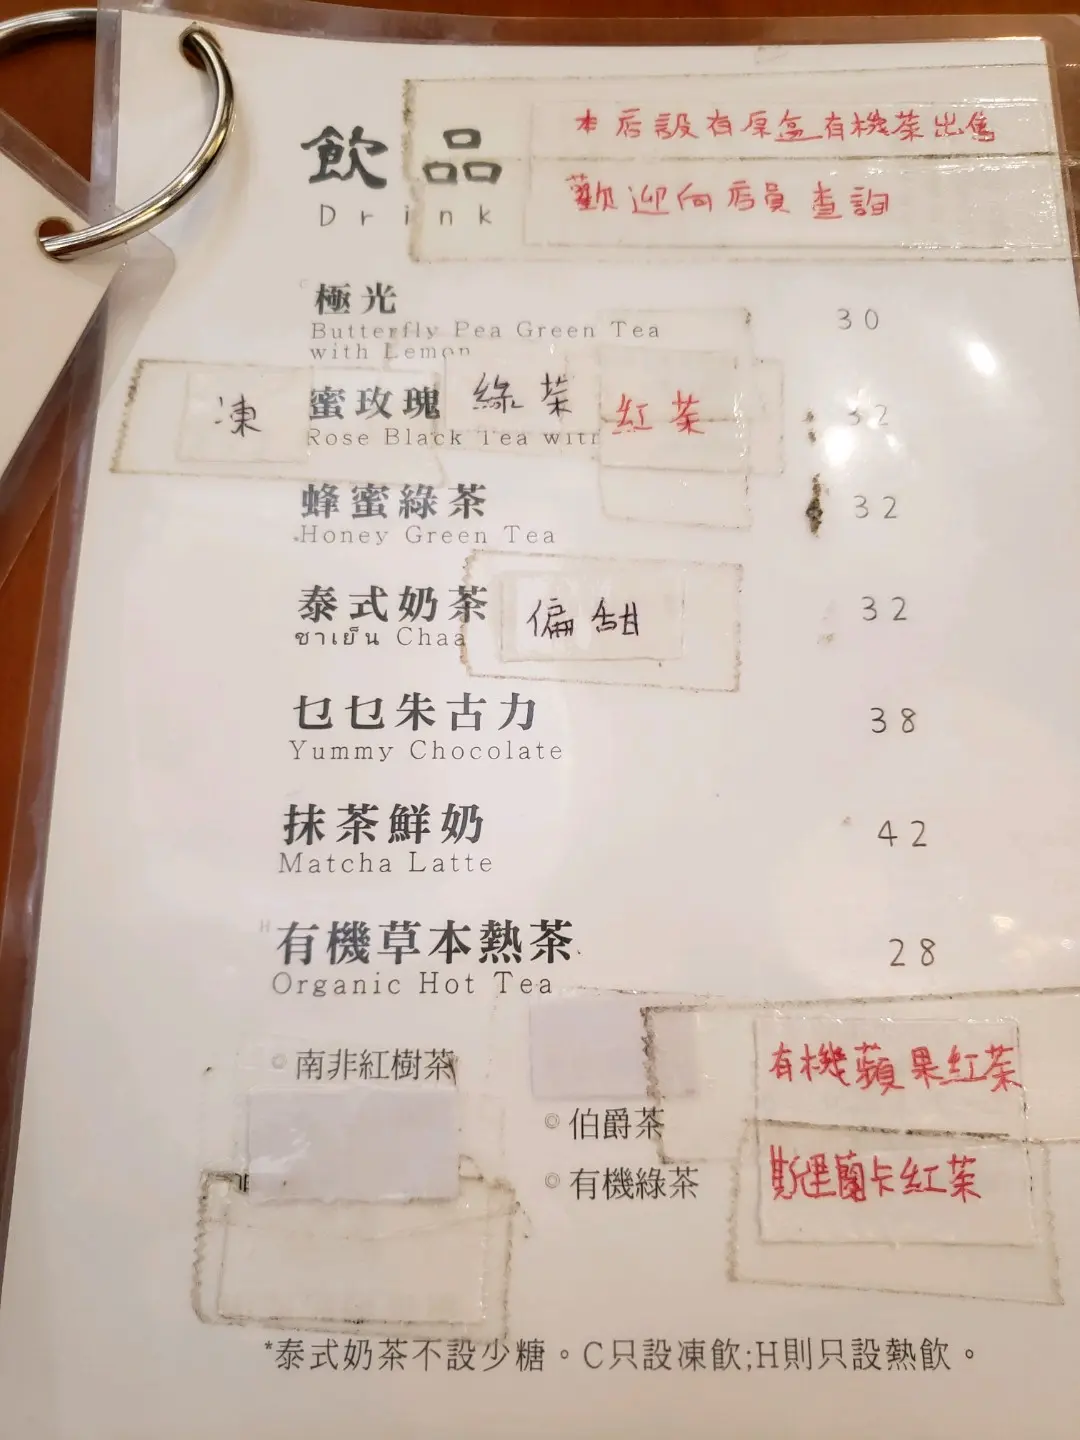 飲品
Drink
本店設有原盒有機茶出售
歡迎向店員查詢
C 極光 30
Butterfly Pea Green Tea
with Lemon
凍 蜜玫瑰 綠茶 紅茶 32
Rose Black Tea with
蜂蜜綠茶 32
Honey Green Tea
泰式奶茶 偏甜 32
ชาเย็น Chaa
乜乜朱古力 38
Yummy Chocolate
抹茶鮮奶 42
Matcha Latte
H 有機草本熱茶 28
Organic Hot Tea
◎ 南非紅樹茶
有機蘋果紅茶
◎ 伯爵茶
◎ 有機綠茶
斯里蘭卡紅茶
*泰式奶茶不設少糖。C只設凍飲;H則只設熱飲。